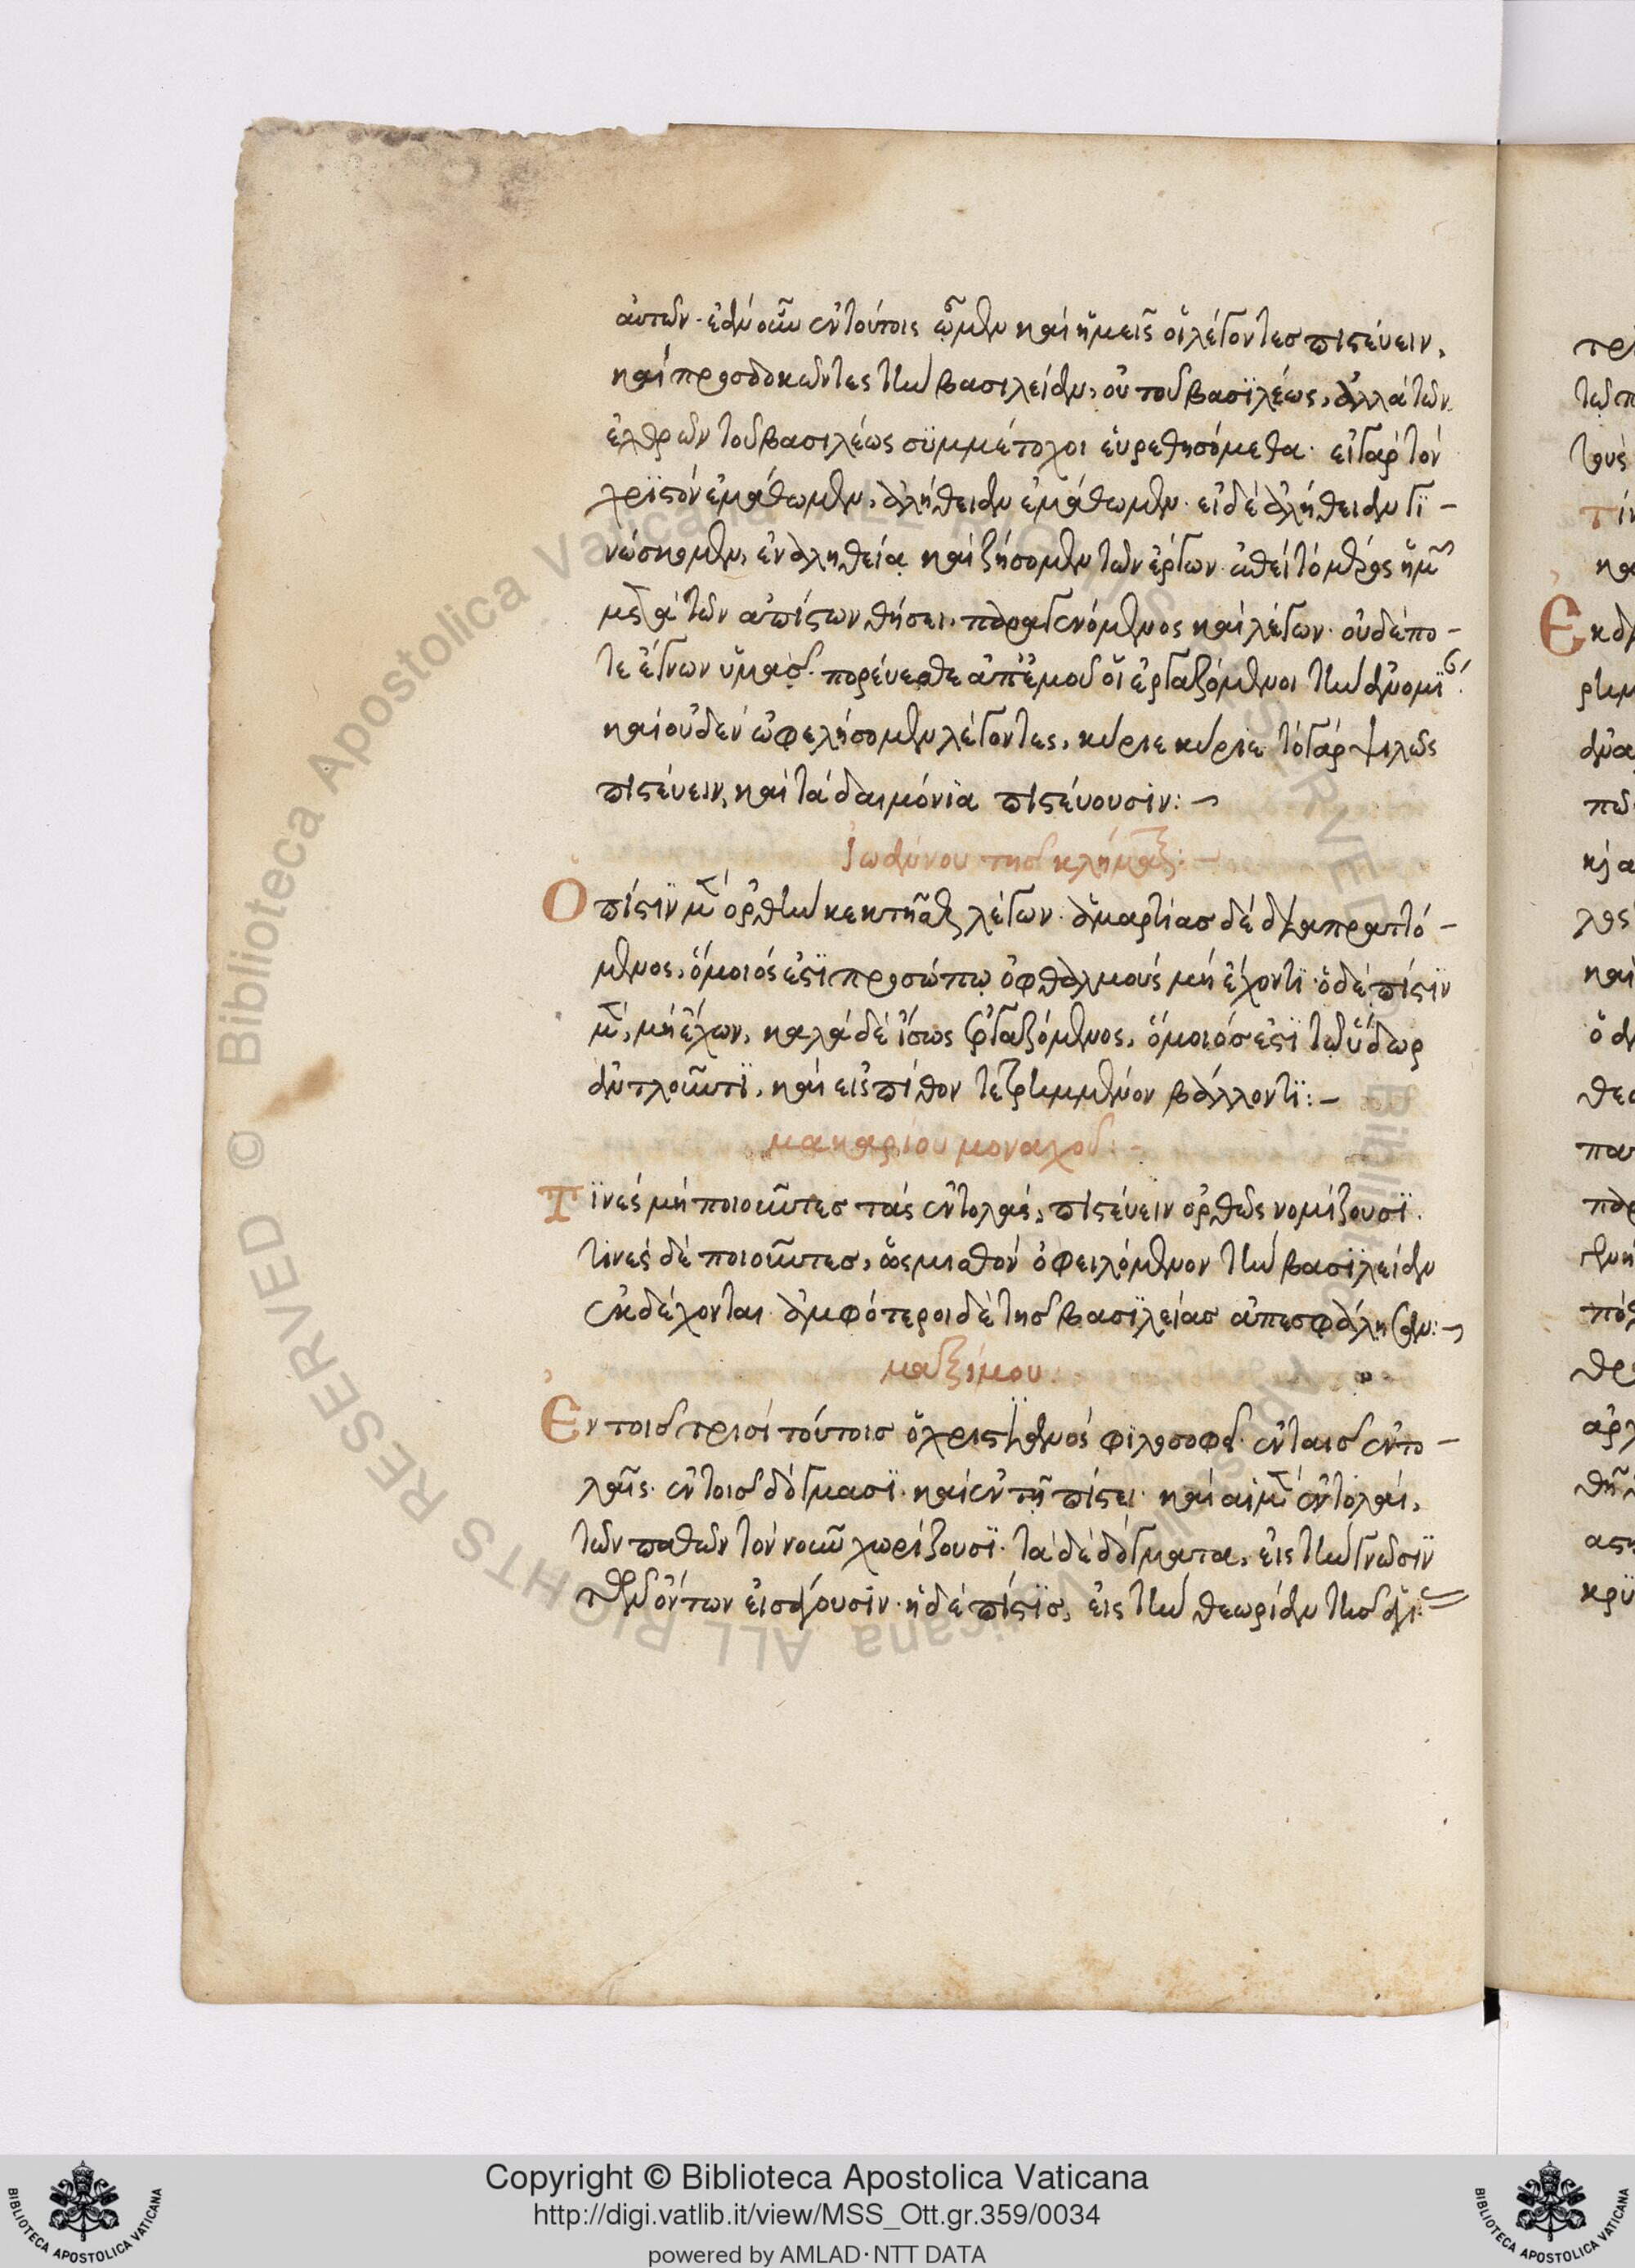 αὐτῶν· ἐὰν οὖν ἐν τούτοις ὦμεν καὶ ἡμεῖς οἱ λέγοντες πιστεύειν,
καὶ προσδοκῶντες τὴν βασιλείαν, οὐ τοῦ βασϊλέως, ἀλλὰ τῶν
ἐχθρῶν τοῦ βασιλέως συμμέτοχοι εὑρεθησόμεθα· εἰ γὰρ τὸν
χριστὸν ἐμάθωμεν, ἀλήθειαν ἐμάθωμεν· εἰ δὲ ἀλήθειαν γϊ-
νώσκομεν, ἐν ἀληθεία καὶ ζήσομεν τῶν ἔργων
μετὰ τῶν ἀπίστων θήσει· παραγενόμενος καὶ λέγων· οὐδέπο-
τε ἔγνων ὑμᾶς· πορεύεσθε ἀπ' ἐμοῦ οἱ ἐργαζόμενοι τὴν ἀνομί
καὶ οὐδὲν ὠφελήσομεν λέγοντες, κύριε κύριε τὸ γὰρ ψιλῶς
πιστεύειν, καὶ τὰ δαιμόνϊα πιστεύουσιν:
Ἰωάννου τῆς κλήμακος:
Ὁ πίστϊν μὲν ὀρθὴν κεκτῆσθαι λέγων· ἁμαρτίας δὲ διαπραττό-
μενος, ὅμοιός ἐστϊ προσώπω ὀφθαλμοὺς μὴ ἔχοντϊ· ὁ δὲ πίστϊν
μὲν, μὴ ἔχων, καλὰ δὲ ἴσως ἐργαζόμενος, ὅμοιός ἐστϊ τῶ ὕδωρ
ἀντλοῦντϊ, καὶ εἰς πίθον τετρημμένον βάλλοντϊ:
μακαρίου μοναχοῦ:
Τϊνὲς μὴ ποιοῦντες τὰς ἐντολὰς, πιστεύειν ὀρθῶς νομίζουσϊ.
τϊνὲς δὲ ποιοῦντες, ὡς μισθὸν ὀφειλόμενον τὴν βασϊλείαν
ἐκδέχονται· ἀμφότεροι δὲ τῆς βασϊλείας ἀπεσφάλησαν:
μαξίμου.
Ἐν τοῖς τρισὶ τούτοις ὁ χριστϊανὸς φϊλοσοφεῖ· ἐν ταῖς ἐντο-
λαῖς· ἐν τοῖς δόγμασϊ· καὶ ἐν τῆ πίστει· καὶ αἱ μὲν ἐντολαὶ,
τῶν παθῶν τὸν νοῦν χωρίζουσϊ· τὰ δὲ δόγματα, εἰς τὴν γνῶσϊν
τῶν ὄντων εἰσάγουσϊν· ἡ δὲ πίστϊς, εἰς τὴν θεωρίαν τῆς ἁγί
Copyright © Biblioteca Apostolica Vaticana
http://digi.vatlib.it/view/MSS_Ott.gr.359/0034
powered by AMLAD·NTT DATA